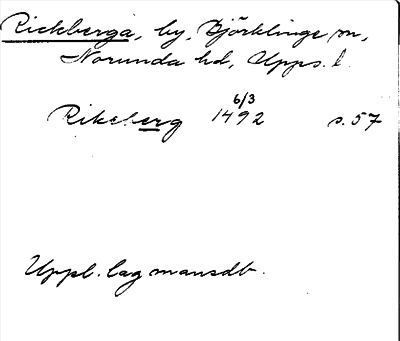 Rickberga, by, Björklinge sn,
Norunda hd, Upps. l.
Rikeberg 6/3 1492 s. 57
Uppl. lagmansdb.